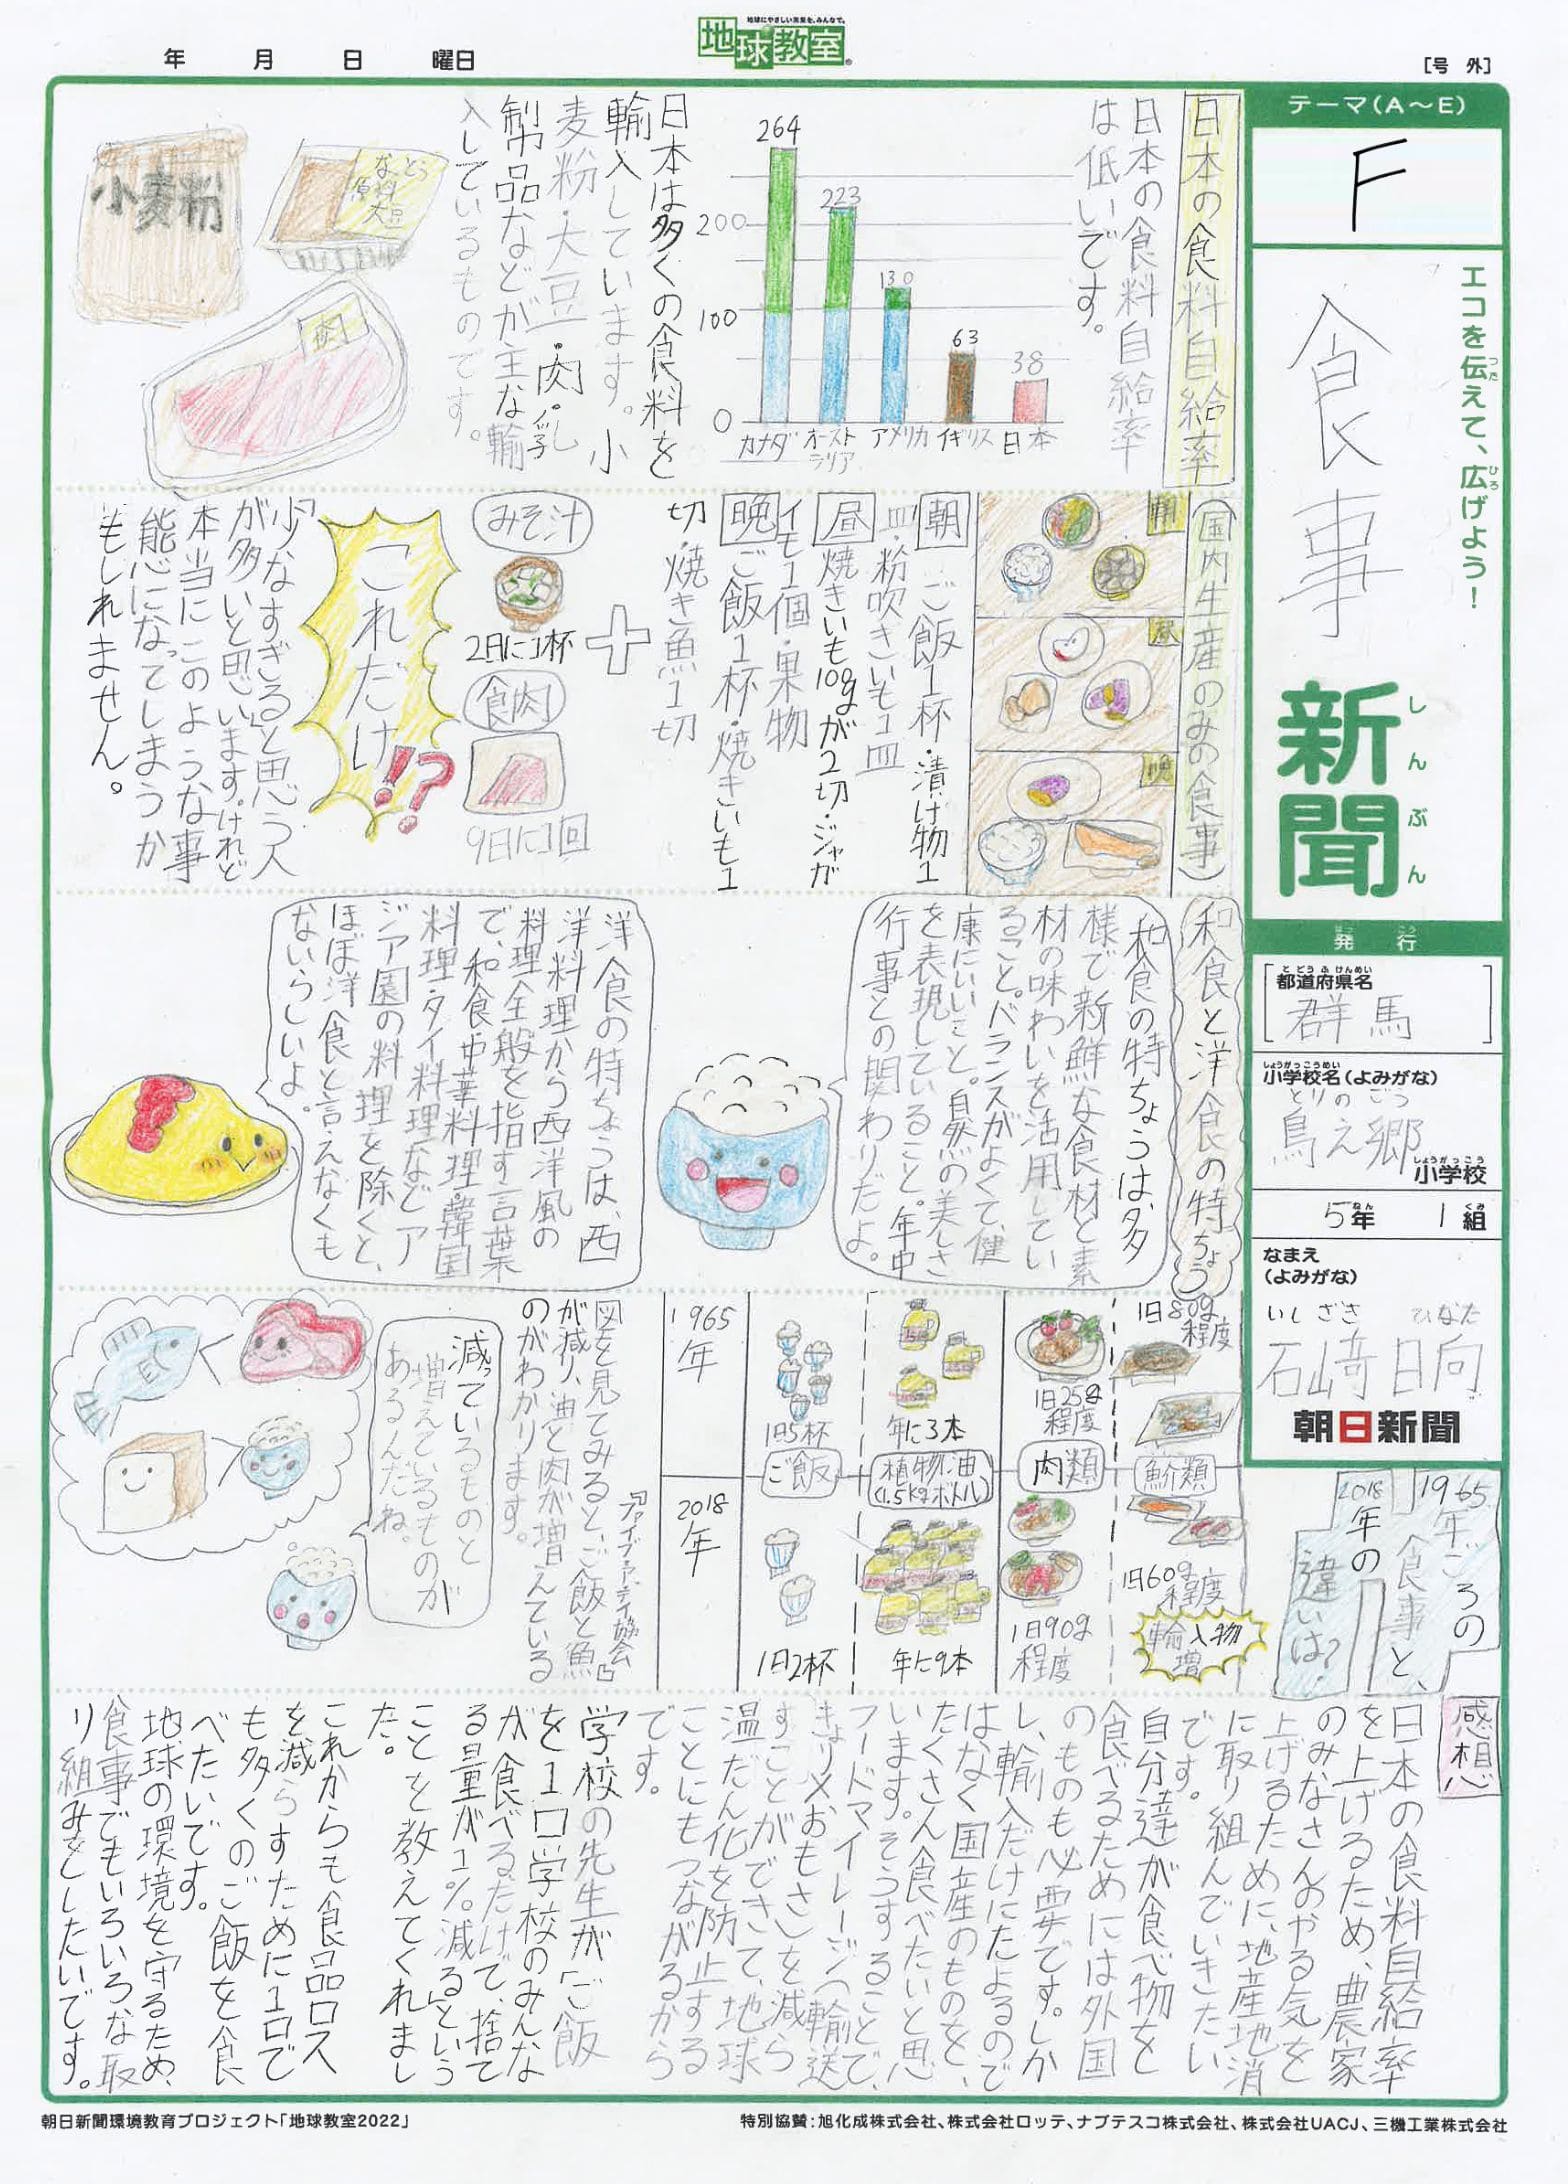 地球にやさしい未来を、みんなで。
地球教室
年 月 日 曜日
[号 外]
テーマ(A～E)
F
エコを伝えて、広げよう!
つた
ひろ
食事
新聞
しんぶん
発行
はっこう
都道府県名
とどうふけんめい
群馬
しょうがっこうめい
小学校名(よみがな)
とりのごう
鳥之郷
しょうがっこう
小学校
5年 1組
ねん くみ
なまえ
(よみがな)
いしざき ひなた
石﨑 日向
朝日新聞
日本の食料自給率
日本の食料自給率
は低いです。
264
223
130
63
38
200
100
0
カナダ
オースト
ラリア
アメリカ
イギリス
日本
日本は多くの食料を
輸入しています。小
麦粉・大豆・肉・乳
製品などが主な輸
入しているものです。
なとう
原料
大豆
小麦粉
肉
(国内生産のみの食事)
朝
昼
晩
朝 ご飯1杯・漬け物1
皿・粉吹きいも1皿
昼 焼きいも10gが2切・ジャガ
イモ1個・果物
晩 ご飯1杯・焼きいも1
切・焼き魚1切
みそ汁
2日に1杯
食肉
9日に1回
これだけ!?
「少なすぎる」と思う人
が多いと思います。けれど
本当にこのような事
態になってしまうか
もしれません。
和食と洋食の特ちょう
和食の特ちょうは、多
様で新鮮な食材と素
材の味わいを活用してい
ること。バランスがよくて、健
康にいいこと。自然の美しさ
を表現していること。年中
行事との関わりだよ。
洋食の特ちょうは、西
洋料理から西洋風の
料理全般を指す言葉
で、和食・中華料理・韓国
料理・タイ料理などア
ジア圏の料理を除くと、
ほぼ洋食と言えなくも
ないらしいよ。
1965年ごろの
食事と、
2018年の
違いは?
1日80g
程度
1日25g
程度
年に3本
1日5杯
1965
年
魚介類
肉類
植物油
(1.5kgボトル)
ご飯
2018
年
1日60g
程度
輸入物
増
1日90g
程度
年に9本
1日2杯
『ファイブ・ア・デイ協会』
図を見てみると、ご飯と魚
が減り、油と肉が増えている
のがわかります。
減っているものと
増えているものが
あるんだね。
感想
日本の食料自給率
を上げるため、農家
のみなさんのやる気を
上げるために、地産地消
に取り組んでいきたい
です。
自分達が食べ物を
食べるためには外国
のものも必要です。しか
し、輸入だけにたよるので
はなく国産のものを、
たくさん食べたいと思
います。そうすることで、
フードマイレージ(輸送
きょり×おもさ)を減ら
すことができて、地球
温だん化を防止する
ことにもつながるから
です。
学校の先生が「ご飯
を1口学校のみんな
が食べるだけで、捨て
る量が1%減る」という
ことを教えてくれまし
た。
これからも食品ロス
を減らすために1口で
も多くのご飯を食
べたいです。
地球の環境を守るため、
食事でもいろいろな取
り組みをしたいです。
朝日新聞環境教育プロジェクト「地球教室2022」
特別協賛:旭化成株式会社、株式会社ロッテ、ナブテスコ株式会社、株式会社UACJ、三機工業株式会社